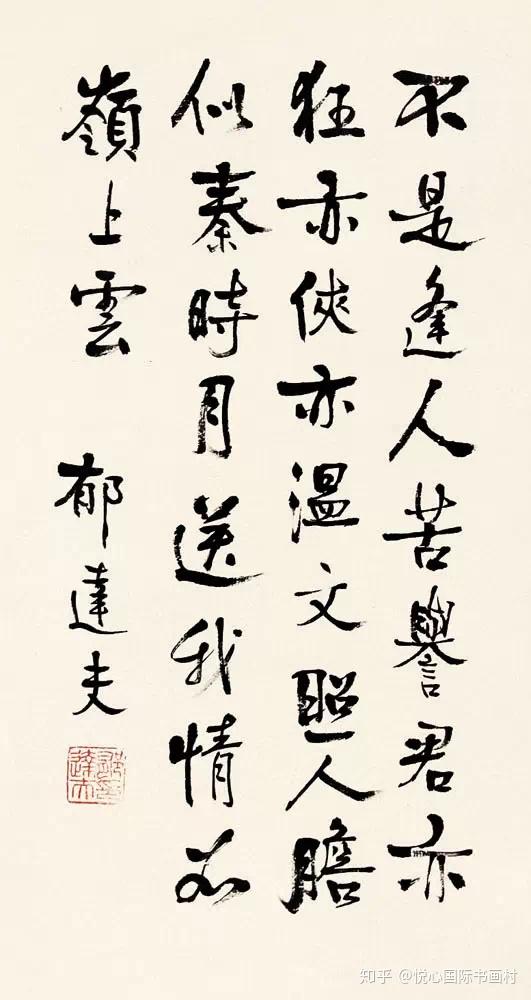 不是逢人苦譽君亦
狂亦俠亦温文照人膽
似秦時月送我情如
嶺上雲
郁達夫
知乎 @悦心国际书画村